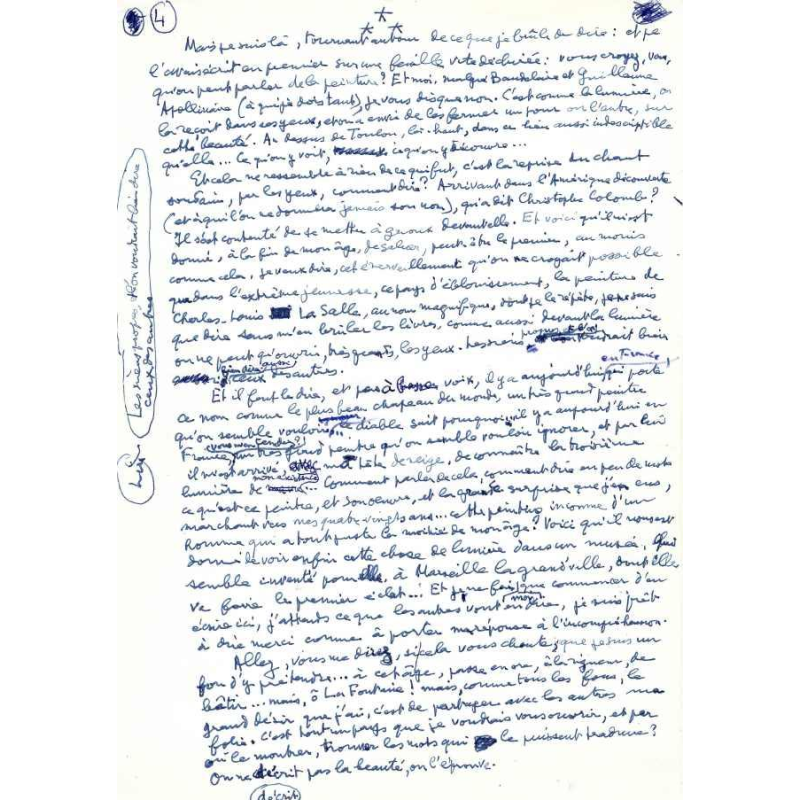 4
Mais je suis là, tournant autour de ce que je brûle de dire : et je
l'avais écrit en premier sur une feuille vite déchirée : vous croyez, vous,
qu'on peut parler de la peinture? Et moi, malgré Baudelaire et Guillaume
Apollinaire (à qui je dois tant), je vous dis que non. C'est comme la lumière, on
la reçoit dans ses yeux, et on a envie de les fermer un pour ou l'autre, sur
cette beauté. Au dessus de Toulon, là-haut, dans un lieu aussi indescriptible
qu'elle... Ce qu'on y voit, ce qu'on y découvre...
Et cela ne ressemble à rien de ce qui fut, c'est la reprise du chant
soudain, par les yeux, comment dire? Arrivant dans l'Amérique découverte
(et à qui l'on ne donnera jamais son nom), qu'a dit Christophe Colomb?
Il s'est contenté de se mettre à genoux devant elle. Et voici qu'il m'est
donné, à la fin de mon âge, de saluer, peut-être le premier, au moins
comme cela, je veux dire, cet émerveillement qu'on ne croyait possible
que dans l'extrême jeunesse, ce pays d'éblouissement, la peinture de
Charles-Louis La Salle, au nom magnifique, dont je le répète, je ne sais
que dire sans m'en brûler les lèvres, comme aussi devant la lumière
on ne peut qu'ouvrir, très grands, les yeux. Les miens propres et l'on voudrait bien
bien dire aussi ceux des autres.
Et il faut le dire, et pas à basse voix, il y a aujourd'hui en France, porté
ce nom comme le plus beau chapeau du monde, un très grand peintre
qu'on semble vouloir... le diable sait pourquoi, il y a aujourd'hui en
France, (vous m'entendez?) un très grand peintre qu'on semble vouloir ignorer, et par qui
il m'est arrivé, ma tête de neige, de connaître la troisième
lumière de mon existence... Comment parler de cela, comment dire en peu de mots
ce qu'est ce peintre, et son œuvre, et la grande surprise que j'en eus,
marchant vers mes quatre-vingts ans... cette peinture inconnue d'un
homme qui a tout juste la moitié de mon âge? Voici qu'il nous est
donné de voir enfin cette chose de lumière dans un musée, qui
semble inventé pour elle, à Marseille la grand'ville, dont elle
va faire le premier éclat... Et je ne fais, moi, que commencer d'en
écrire ici, j'attends ce que les autres vont en dire, je suis prêt
à dire merci comme à porter ma réponse à l'incompréhension.
Allez, vous me direz, si cela vous chante, que je suis un
fou d'y prétendre... à cet âge, passe encore, à la rigueur, de
bâtir... mais, ô La Fontaine! mais, comme tous les fous, le
grand désir que j'ai, c'est de partager avec les autres ma
folie. C'est tout un pays que je voudrais vous ouvrir, et par
où le montrer, trouver les mots qui le puissent traduire?
On ne décrit pas la beauté, on l'éprouve.
décrit
Les miens propres, et l'on voudrait bien dire
ceux des autres